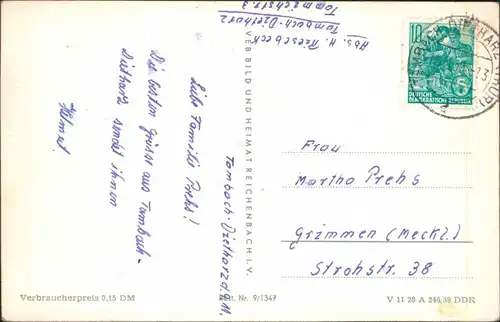 Abs. H. Reesebeck
Tambach-Dietharz
Tammichstr. 3
Tambach-Dietharz d.
Liebe Familie Prehs!
Die besten Grüsse aus Tambach-
Dietharz sendet ihnen
Helmut
VEB BILD UND HEIMAT REICHENBACH I. V.
10
DEUTSCHE
DEMOKRATISCHE REPUBLIK
Frau
Martha Prehs
Grimmen (Meckl.)
Strohstr. 38
Verbraucherpreis 0,15 DM
Best. Nr. 9/1347
V 11 28 A 246/59 DDR